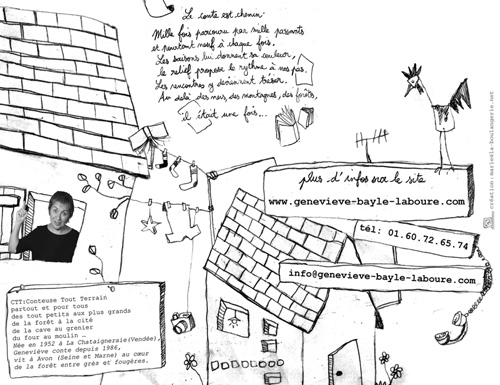 Le conte est chemin.
Mille fois parcouru par mille passants
et pourtant neuf à chaque fois.
Les saisons lui donnent sa couleur,
le relief propose le rythme à nos pas.
Les rencontres y deviennent trésor.
Au delà des mers, des montagnes, des forêts,
il était une fois...
plus d'infos sur le site
www.genevieve-bayle-laboure.com
tél: 01.60.72.65.74
info@genevieve-bayle-laboure.com
CTT:Conteuse Tout Terrain
partout et pour tous
des tout petits aux plus grands
de la forêt à la cité
de la cave au grenier
du four au moulin …
Née en 1952 à La Chataigneraie(Vendée),
Geneviève conte depuis 1986,
vit à Avon (Seine et Marne) au cœur
de la forêt entre grés et fougères.
création: mariela-boulangerie.net